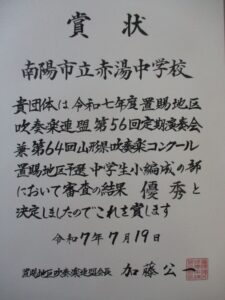 賞状
南陽市立赤湯中学校
貴団体は令和七年度置賜地区
吹奏楽連盟第56回定期演奏会
兼第64回山形県吹奏楽コンクール
置賜地区予選中学生小編成の部
において審査の結果 優秀と
決定しましたのでこれを賞します
令和7年7月19日
置賜地区吹奏楽連盟会長 加藤公一